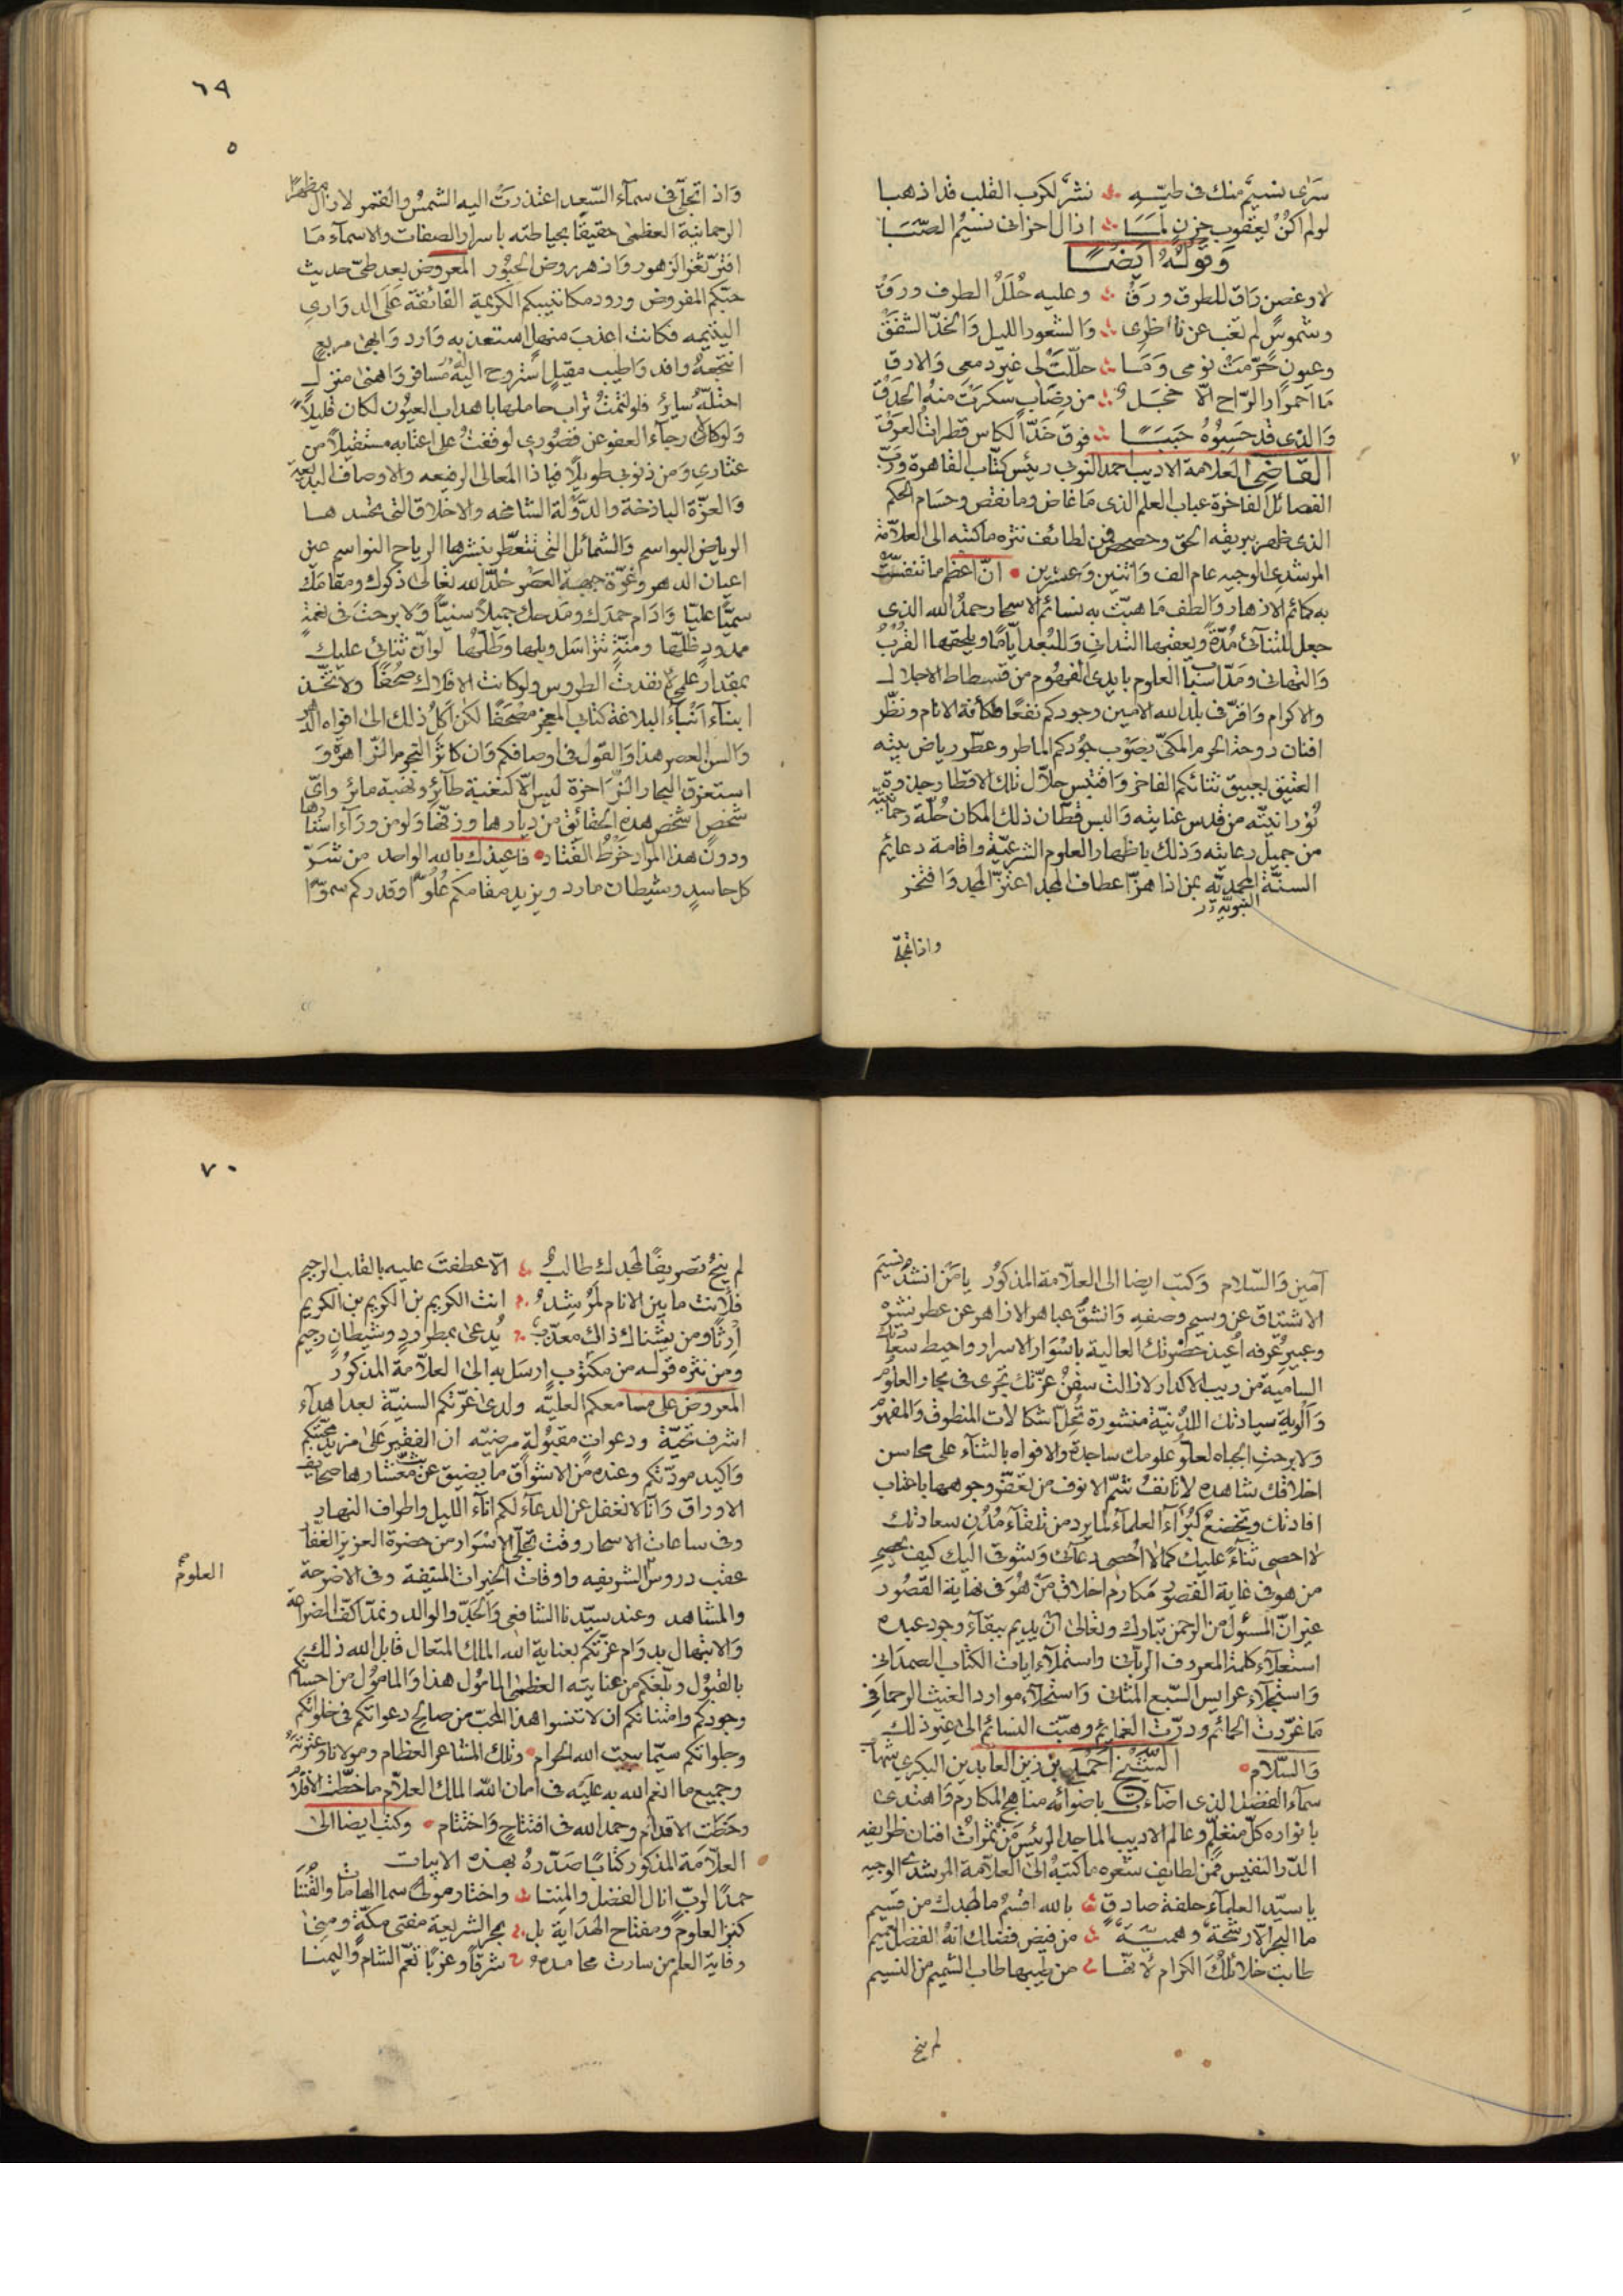 سرى نسيم منك في طيه نشر لكرب القلب قد اذهبا
لو لم اكن يعقوب حزن لما ازال احزاني نسيم الصبا
وقوله ايضا
لا وغصن راق للطرف ورق وعليه حلل الطرف ورق
وشموس لم تغب عن ناظري والشعور الليل والخد الشفق
وعيون حرمت نومي وما حللت لي غير دمعي والارق
ما احمرار الراح الا خجل من رضاب سكرت منه الحدق
والذي قد حسبوه حببا فوق خد الكاس قطرات العرق
القاضي العلامة الاديب احمد النوبي رئيس كتاب القاهرة ورب
الفضائل الفاخرة عباب العلم الذي ما غاض وما نقص وحسام الحكم
الذي ظهر ببريقه الحق وحصحص فمن لطائف نثره ما كتبه الى العلامة
المرشدي الوجيه عام الف واثنين وعشرين ان اعظم ما تنفست
به كمائم الازهار والطف ما هبت به نسائم الاسحار حمد الله الذي
جعل للتنائي مدة ويعقبها التداني وللبعد اياما ويلحقها القرب
والتهاني ومد اسباب العلوم بايدي الفهوم من قسطاط الاجلال
والاكرام واقر في بلد الله الامين وجودكم نفعا لكافة الانام ونظر
افنان دوحة الحرم المكي بصوب جودكم الماطر وعطر رياض بيته
العتيق بعبيق ثنائكم الفاخر واقتبس حلال تلك الاقطار جذوة
نورانيته من قدس عنايته والبس قطان ذلك المكان حلة رحمانيته
من جميل رعايته وذلك باظهار العلوم الشرعية واقامة دعائم
السنة المحمدية بمن اذا هز اعطاف المجد اعتز المجد وافتخر
النبوية
واذا تجلى
٦٩
٥
واذا تجلى في سماء السعد اعتذرت اليه الشمس والقمر لا زال مظهر
الرحمانية العظمى حقيقا بحياطته باسرار الصفات والاسماء ما
افتر ثغر الزهور وازهر روض الحبور المعروض بعد طي حديث
حبكم المفروض ورود مكاتيبكم الكريمة الفائقة على الدراري
اليتيمه فكانت اعذب منهل استعذبه وارد وابهى مربع
انتجعه وافد واطيب مقيل استروح اليه مسافر واهنى منزل
احتله ساير فلو لثمت تراب حاملها باهداب العيون لكان قليلا
ولو كان رجاء العفو عن قصوري لوقفت على اعتابه مستقيلا من
عثاري ومن ذنوبي طويلا فيا ذا المعالي الرفيعه والاوصاف البديعة
والعزة الباذخة والدولة الشامخه والاخلاق التي تحسد ها
الرياض البواسم والشمائل التي تتعطر بنشرها الرياح النواسم عين
اعيان الدهر وغرة جبهة العصر خلد الله تعالى ذكرك ومقامك
سميا عليا وادام حمدك ومدحك جميلا سنيا ولا برحت في نعمة
ممدود ظلها ومنة تتواسل وبلها وطلها لو ان ثنائي عليك
بمقدار علمي نفدت الطروس ولو كانت الافلاك صحفا ولاتخذ
ابناء انباء البلاغة كتابي المعجز مصحفا لكن اكل ذلك الى افواه الدهر
والسن العصر هذا والقول في اوصافكم وان كاثر النجوم الزاهرة و
استغرق البحار الزاخرة ليس الا كنغبة طائر ونهبة مائر واي
شخص اشخص هذه الحقائق من ديارها وزفها ولو من وراء استارها
ودون هذا المراد خرط القتاد فاعيذك بالله الواحد من شر
كل حاسد وشيطان مارد ويزيد مقامكم علوا وقدركم سموا
امين والسلام وكتب ايضا الى العلامة المذكور يا من انشد نسيم
الاشتياق عن وسيم وصفه وانشق عباهر الازاهر عن عطر نشره
وعبير عرفه اعيذ حضرتك العالية باسوار الاسرار واحيط سعادتك
السامية من ريب الاكدار لا زالت سفن عزتك تجري في بحار العلوم
والوية سيادتك اللدنية منشورة تحل اشكالات المنطوق والمفهوم
ولا برحت الجباه لعلو علومك ساجدة والافواه بالثناء على محاسن
اخلاقك شاهده لا تانف شم الانوف من تعفر وجوهها باعتاب
افادتك وتخضع كبراء العلماء لما يرد من تلقاء مدن سعادتك
لا احصي ثناء عليك كما لا احصي دعائي وشوقي اليك كيف يحصر
من هو في غاية القصور مكارم اخلاق من هو في نهاية القصور
غير ان المسئول من الرحمن تبارك وتعالى ان يديم ببقاء وجود عبده
استعلاء كلمة المعروف الرباني واستملاء ايات الكتاب الصمداني
واستجلاء عرايس السبع المثاني واستحلاء موارد الغيث الرحماني
ما غردت الحمائم ودرت الغمايم وهبت النسائم الى غير ذلك
والسلام الشيخ احمد بن زين العابدين البكري شهاب
سماء الفضل الذي اضاءت باضوائه مناهج المكارم واهتدى
بانواره كل متعلم وعالم الاديب الماجد الرئيس من ثمرات افنان ظرايفه
الدر النفيس فمن لطايف شعره ما كتبه الى العلامة المرشدي الوجيه
يا سيد العلماء حلفة صادق بالله اقسم ما لمجدك من قسيم
ما البحر الا رشحة وهمية من فيض فضلك انه الفضل العميم
طابت خلائقك الكرام لانها من طيبها طاب الشميم من النسيم
لم ينح
٧٠
لم ينح تصريفا لمجدك طالب الا عطفت عليه بالقلب الرحيم
فلانت ما بين الانام لمرشد انت الكريم بن الكريم بن الكريم
ارثا ومن يشناك ذاك معذب يدعى بمطرود وشيطان رجيم
ومن نثره قوله من مكتوب ارسل به الى العلامة المذكور
المعروض على مسامعكم العلية ولدى غرتكم السنية بعد اهداء
اشرف تحية ودعوات مقبولة مرضيه ان الفقير على مزيد محبتكم
واكيد مودتكم وعنده من الاشواق ما يضيق عن معشارها صحايف
الاوراق وانا لا نغفل عن الدعاء لكم اناء الليل واطراف النهار
وفي ساعات الاسحار وقت تجلي الاسرار من حضرة العزيز الغفار
عقب دروس الشريفه واوقات الخيرات المنيفة وفي الاضرحة
العلوم
والمشاهد وعند سيدنا الشافعي والجد والوالد ونمد اكف الضراعة
والابتهال بدوام عزتكم بعناية الله الملك المتعال قابل الله ذلك
بالقبول وبلغكم من عنايته العظمى المامول هذا والمامول من احسان
وجودكم وامتنانكم ان لا تنسوا هذا المحب من صالح دعواتكم في خلواتكم
وجلواتكم سيما ببيت الله الحرام وتلك المشاعر العظام ومولانا وعترته
وجميع ما انعم الله به عليه في امان الله الملك العلام ما خطت الاقلام
وخطت الاقدام وحمد الله في افتتاح واختتام وكتب ايضا الى
العلامة المذكور كتابا صدره بهذه الابيات
حمدا لرب انال الفضل والمننا واختار مولى سما الهامات والقننا
كنز العلوم ومفتاح الهداية بل بحر الشريعة مفتي مكة ومنى
وقاية العلم من سارت محامده شرقا وغربا تعم الشام واليمنا